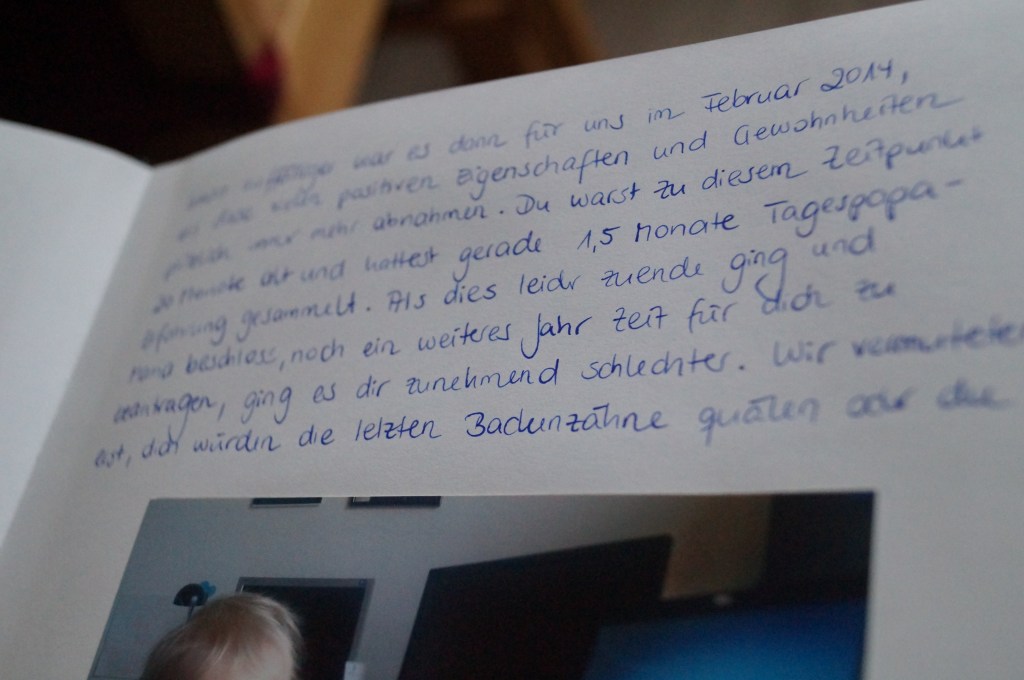 war es dann für uns im Februar 2014,
positiven Eigenschaften und Gewohnheiten
mehr abnahmen. Du warst zu diesem Zeitpunkt
Monate alt und hattest gerade 1,5 Monate Tagespapa-
gesammelt. Als dies leidr zuende ging und
beschloss, noch ein weiteres Jahr Zeit für dich zu
ging es dir zunehmend schlechter. Wir vermuteten
dich würden die letzten Backenzähne quälen oder die